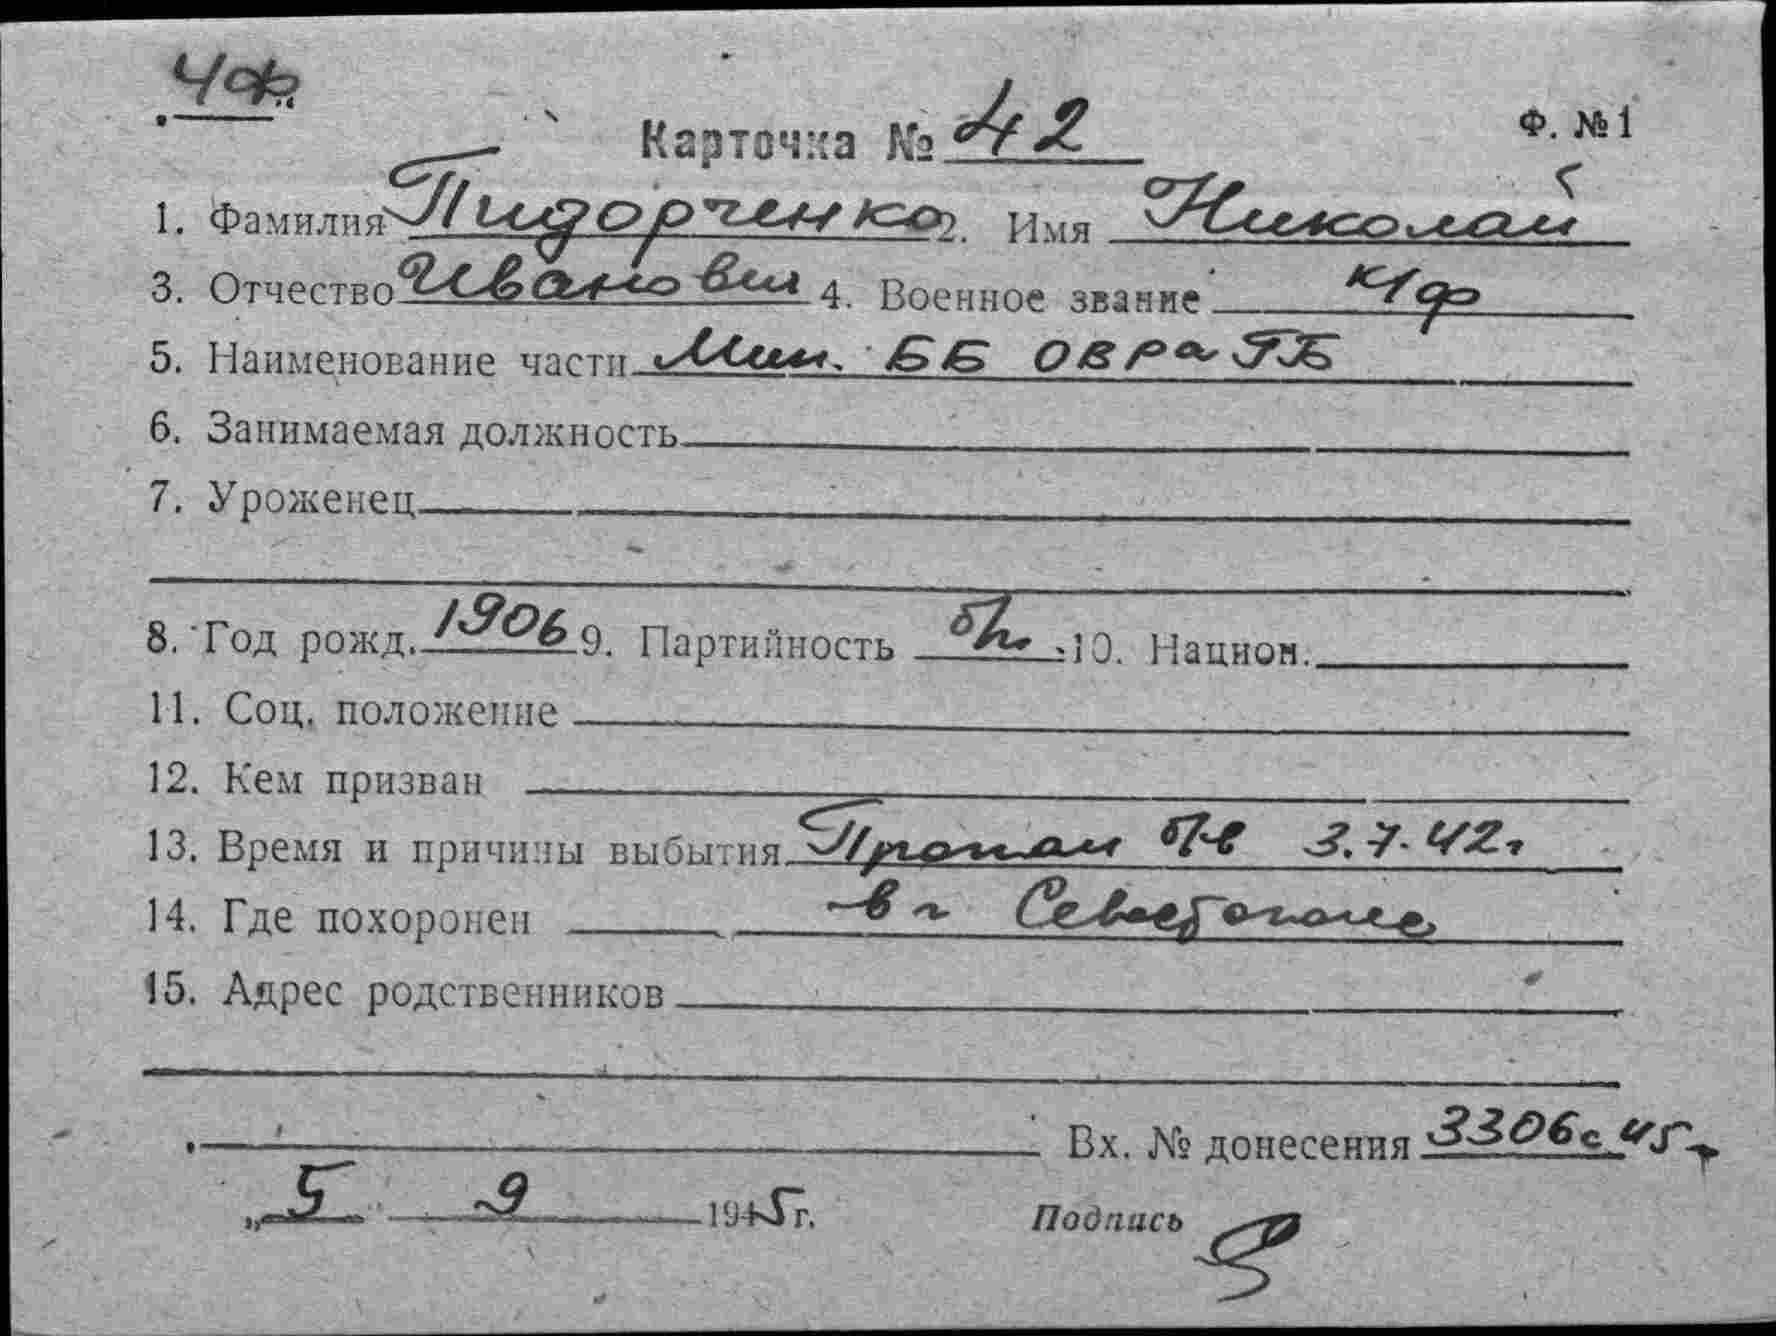 ЧФ
Карточка № 42 Ф. №1
1. Фамилия Пидорченко 2. Имя Николай
3. Отчество Иванович 4. Военное звание к/ф
5. Наименование части Мин. ББ ОВРа ГБ
6. Занимаемая должность
7. Уроженец
8. Год рожд. 1906 9. Партийность б/п. 10. Национ.
11. Соц. положение
12. Кем призван
13. Время и причины выбытия Пропал б/в 3.7.42г
14. Где похоронен в г Севастополе
15. Адрес родственников
Вх. № донесения 3306с 45г
„5 9 1945г. Подпись